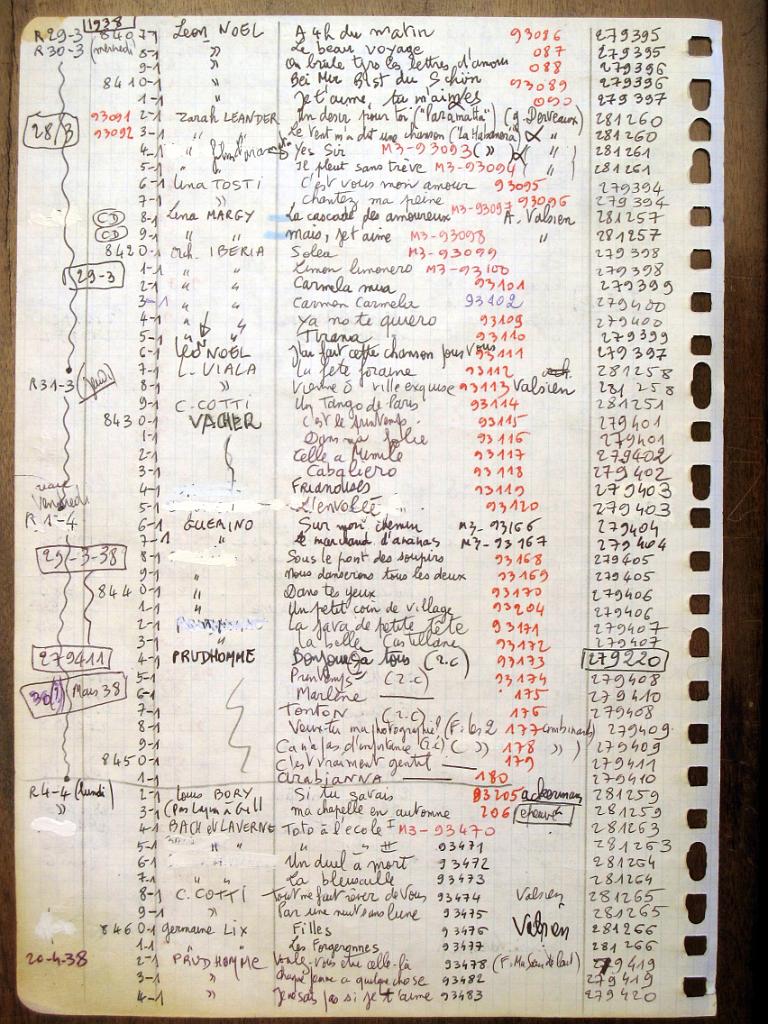 1938
R 29-3 8407-1 Leon NOEL A 4h du matin 93086 279395
R 30-3 (mercredi) 8-1 » Le beau voyage 087 279395
9-1 » On brûle tes lettres d'amour 088 279396
8410-1 » Bei Mir Bist du Schön 93089 279396
1-1 » Je t'aime, tu m'aimes 090 279397
93091 2-1 Zarah LEANDER Un désir pour toi ("Paramatta") (g. Derveaux) 281260
28/3 93092 3-1 " " Le vent m'a dit une chanson ("La Habanera") " 281260
4-1 " Yes Sir M3-93093 (») " 281261
5-1 " Il pleut sans trève M3-93094 " 281261
6-1 Lina TOSTI C'est vous mon amour 93095 279394
7-1 » chantez ma peine 93096 279394
CD 8-1 Lina MARGY La cascade des amoureux M3-93097 A. Valsien 281257
CD 9-1 " " mais, je t'aime M3-93098 " 281257
8420-1 Orch. IBERIA Solea M3-93099 279398
29-3 1-1 " " Limon limonero M3-93100 279398
2-1 " " Carmela mua 93101 279399
3-1 " " Carmen Carmela 93102 279400
4-1 " " Ya no te quiero 93109 279400
5-1 " " Tirana 93110 279399
6-1 Léo NOEL J'ai fait cette chanson pour Vous 93111 279397
R 31-3 (jeudi) 7-1 L. VIALA La fête foraine 93112 281258
8-1 » Vienne ô ville exquise 93113 Valsien 281258
9-1 C. COTTI Un Tango de Paris 93114 281251
8430-1 VACHER C'est le printemps 93115 279401
1-1 Dans ma folie 93116 279401
2-1 Celle à Mimile 93117 279402
3-1 Caballero 93118 279402
4-1 FRIANOUSES 93119 279403
Vendredi 5-1 L'envolée 93120 279403
R 1-4 6-1 GUERINO Sur mon chemin M3-93166 279404
7-1 » Le marchand d'ananas M3-93167 279404
29-3-38 8-1 Sous le pont des soupirs 93168 279405
9-1 " Nous danserons tous les deux 93169 279405
8440-1 " Dans tes yeux 93170 279406
1-1 " Un petit coin de village 93204 279406
2-1 La java de petite tête 93171 279407
3-1 " La belle Castillane 93172 279407
279411 4-1 PRUDHOMME Bonjour à tous (2.c) 93173 279220
5-1 Printemps (2.c) 93174 279408
30(?) Mars 38 6-1 Marlène 175 279410
7-1 TONTON (2.c) 176 279408
8-1 Veux-tu ma photographie? (F. les 2 177 combinards) 279409
9-1 Ca n'a pas d'importance (2.c) ( » ) 178 » ) 279409
8450-1 C'est vraiment gentil 179 279411
1-1 Arabianna 180 279410
R 4-4 (lundi) 2-1 Louis BORY Si tu savais 93205 Ackermans 281259
» 3-1 (Pas Layon à Gill) ma chapelle en automne 206 281259
4-1 BACH et LAVERNE Toto à l'école I M3-93470 281263
5-1 " " " " II 93471 281263
6-1 Un duel à mort 93472 281264
7-1 La bleusaille 93473 281264
8-1 C. COTTI Tout me fait rêver de Vous 93474 Valsien 281265
9-1 » Par une nuit sans lune 93475 281265
8460-1 Germaine LIX Filles 93476 Valsien 281266
1-1 " Les Forgeronnes 93477 281266
20-4-38 2-1 PRUDHOMME Voulez-vous être celle-là 93478 279419
3-1 » Chaque femme a quelque chose 93482 279419
4-1 » Je ne sais pas si je t'aime 93483 279420